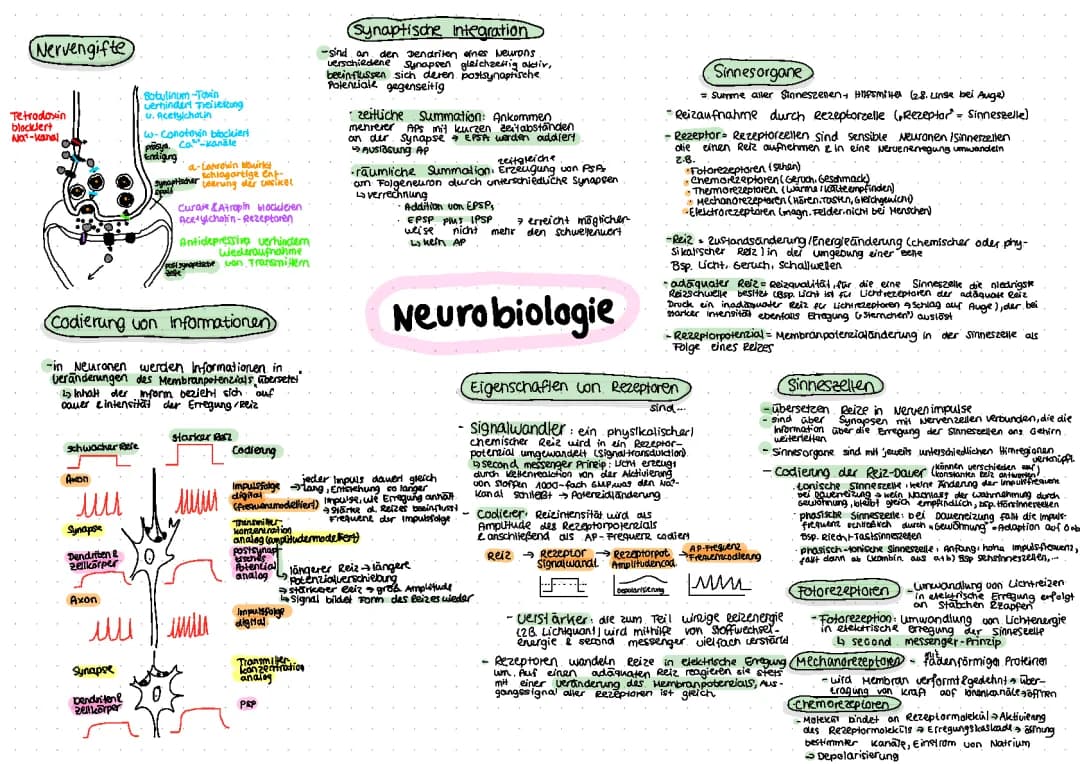 Nervengifte
Tetrodoxin
blockiert
Na⁺-Kanal
Botulinum-Toxin
verhindert Freisetzung
v. Acetylcholin
ω-Conotoxin blockiert
Ca²⁺-Kanäle
präsyn.
Endigung
α-Latroxin bewirkt
schlagartige Ent-
leerung der Vesikel
synaptischer
Spalt
Curare & Atropin blockieren
Acetylcholin-Rezeptoren
Antidepressiva verhindern
Wiederaufnahme
von Transmittern
postsynaptische
Zelle
Synaptische Integration
-sind an den Dendriten eines Neurons
verschiedene Synapsen gleichzeitig aktiv,
beeinflussen sich deren postsynaptische
Potenziale gegenseitig
· zeitliche Summation: Ankommen
mehrerer APs mit kurzen Zeitabständen
an der Synapse → EPSPs werden addiert
↳ Auslösung AP
· räumliche Summation: zeitgleiche Erzeugung von PSPs
am Folgeneuron durch unterschiedliche Synapsen
↳ Verrechnung
· Addition von EPSPs
· EPSP plus IPSP → erreicht möglicher-
weise nicht mehr den Schwellenwert
↳ kein AP
Sinnesorgane
= Summe aller Sinneszellen + Hilfsmittel (z.B. Linse bei Auge)
- Reizaufnahme durch Rezeptorzelle („Rezeptor" = Sinneszelle)
- Rezeptor = Rezeptorzellen sind sensible Neuronen/Sinneszellen
die einen Reiz aufnehmen & in eine Nervenerregung umwandeln
z.B.
· Fotorezeptoren (Sehen)
· Chemorezeptoren (Geruch, Geschmack)
· Thermorezeptoren (Wärme/Kälteempfinden)
· Mechanorezeptoren (Hören, Tasten, Gleichgewicht)
· Elektrorezeptoren (magn. Felder-nicht bei Menschen)
-Reiz = Zustandsänderung/Energieänderung (chemischer oder phy-
sikalischer Reiz) in der Umgebung einer Zelle
Bsp. Licht, Geruch, Schallwellen
-adäquater Reiz = Reizqualität, für die eine Sinneszelle die niedrigste
Reizschwelle besitzt (Bsp. Licht ist für Lichtrezeptoren der adäquate Reiz
Druck ein inadäquater Reiz für Lichtrezeptoren → Schlag auf Auge), der bei
starker Intensität ebenfalls Erregung („Sternchen") auslöst
- Rezeptorpotenzial = Membranpotenzialänderung in der Sinneszelle als
Folge eines Reizes
Neurobiologie
Codierung von Informationen
-in Neuronen werden Informationen in
Veränderungen des Membranpotenzials „übersetzt"
↳ Inhalt der Inform bezieht sich auf
Dauer & Intensität der Erregung/Reiz
schwacher Reiz
starker Reiz
Codierung
Axon
Impulsfolge
digital
(frequenzmoduliert)
jeder Impuls dauert gleich
→ lang, Entstehung so langer
Impulse, wie Erregung anhält
→ Stärke d. Reizes beeinflusst
Frequenz der Impulsfolge
Synapse
Transmitter-
konzentration
analog (amplitudenmoduliert)
Dendriten &
Zellkörper
postsynap-
tisches
Potential
analog
längerer Reiz → längere
Potenzialverschiebung
→ stärkerer Reiz → größ. Amplitude
↳ Signal bildet Form des Reizes wieder
Axon
Impulsfolge
digital
Synapse
Transmitter-
konzentration
analog
Dendriten &
Zellkörper
PSP
Eigenschaften von Rezeptoren
sind...
- Signalwandler: ein physikalischer/
chemischer Reiz wird in ein Rezeptor-
potenzial umgewandelt (Signaltransduktion)
↳ second messenger Prinzip: Licht erzeugt
durch Kettenreaktion von der Aktivierung
von Stoffen 1000-fach GMP, was den Na⁺-
Kanal schließt → Potenzialänderung
- Codierer: Reizintensität wird als
Amplitude des Rezeptorpotenzials
& anschließend als AP-Frequenz codiert
Reiz → Rezeptor → Rezeptorpot → AP-Frequenz
Signalwandl. Amplitudencod. Frequenzcodierung
Depolarisierung
- Verstärker: die zum Teil winzige Reizenergie
(z.B. Lichtquant) wird mithilfe von Stoffwechsel-
energie & second messenger vielfach verstärkt
- Rezeptoren wandeln Reize in elektrische Erregung
um. Auf einen adäquaten Reiz reagieren sie stets
mit einer Veränderung des Membranpotenzials, Aus-
gangssignal aller Rezeptoren ist gleich.
Sinneszellen
- übersetzen Reize in Nervenimpulse
- sind über Synapsen mit Nervenzellen verbunden, die die
Information über die Erregung der Sinneszellen ans Gehirn
weiterleiten
- Sinnesorgane sind mit jeweils unterschiedlichen Hirnregionen
verknüpft
- Codierung der Reiz-Dauer (können verschieden auf
konstanten Reiz antworten)
·tonische Sinneszelle: keine Änderung der Impulsfrequenz
bei Dauerreizung → kein Nachlass der Wahrnehmung durch
Gewöhnung, bleibt gleich empfindlich, Bsp. Hörsinneszellen
·phasische Sinneszelle: bei Dauerreizung fällt die Impuls-
frequenz schließlich durch „Gewöhnung" = Adaption auf 0 ab
Bsp. Riech-/Tastsinneszellen
·phasisch-tonische Sinneszelle: Anfang: hohe Impulsfrequenz,
fällt dann ab (Kombin aus a+b) Bsp Sehsinneszellen,...
Fotorezeptoren
- Umwandlung von Lichtreizen
in elektrische Erregung erfolgt
an Stäbchen & Zapfen
- Fotorezeption: Umwandlung von Lichtenergie
in elektrische Erregung der Sinneszelle
↳ second messenger-Prinzip
Mechanorezeptoren
- mit fadenförmigen Proteinen
- wird Membran verformt & gedehnt → über-
tragung von Kraft auf Ionenkanäle → öffnen
Chemorezeptoren
- Molekül bindet an Rezeptormolekül → Aktivierung
des Rezeptormoleküls → Erregungskaskade → öffnung
bestimmter Kanäle, Einstrom von Natrium
→ Depolarisierung